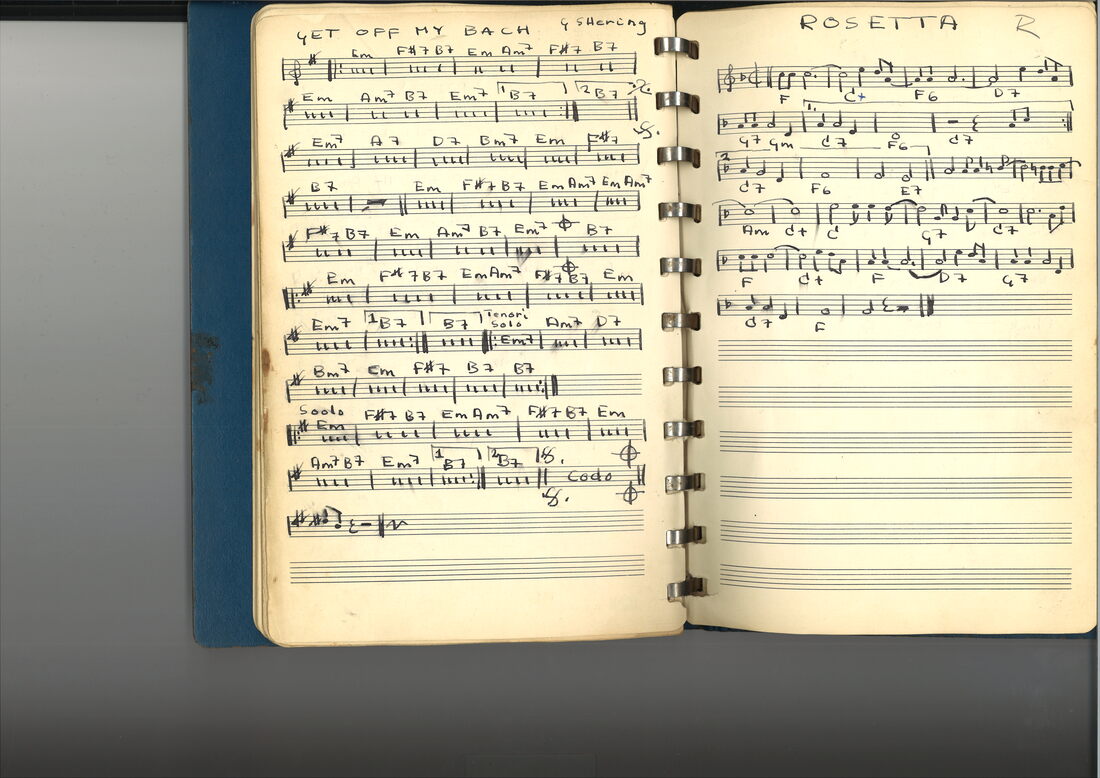 GET OFF MY BACH G SHering
Em F#7 B7 Em Am7 F#7 B7
Em Am7 B7 Em7 1 B7 2 B7
Em7 A7 D7 Bm7 Em F#7
B7 Em F#7 B7 Em Am7 Em Am7
F#7 B7 Em Am7 B7 Em7 B7
Em F#7 B7 Em Am7 F#7 B7 Em
Em7 1 B7 B7 Tenori Solo Em7 Am7 D7
Bm7 Em F#7 B7 B7
Soolo
Em F#7 B7 Em Am7 F#7 B7 Em
Am7 B7 Em7 1 B7 2 B7 Codo
ROSETTA R
F C+ F6 D7
1.
G7 Gm C7 F6 C7
2
C7 F6 E7
Am C+ C G7 C7
F C+ F D7 G7
C7 F